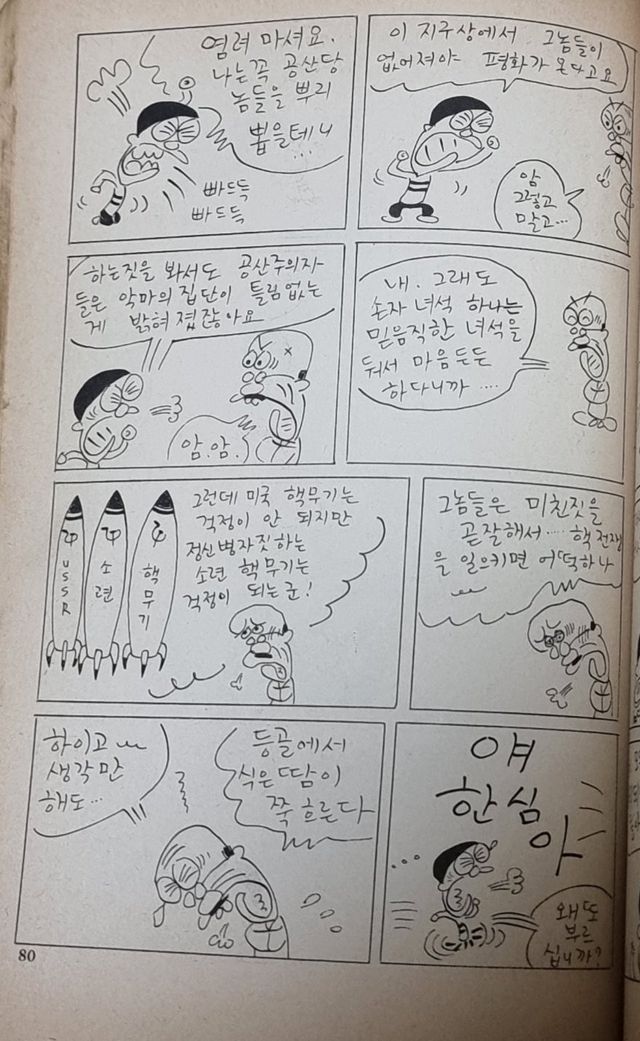 염려 마셔요.
나는 꼭 공산당
놈들을 뿌리
뽑을테니
...
빠드득
빠드득
이 지구상에서 그놈들이
없어져야 평화가 온다고요
암
그렇고
말고...
하는짓을 봐서도 공산주의자
들은 악마의 집단이 틀림없는
게 밝혀졌잖아요
암. 암.
내. 그래도
손자 녀석 하나는
믿음직한 녀석을
둬서 마음 든든
하다니까 ....
USSR
소련
핵무기
그런데 미국 핵무기는
걱정이 안 되지만
정신병자짓하는
소련 핵무기는
걱정이 되는군!
그놈들은 미친짓을
곧잘해서..... 핵전쟁
을 일으키면 어떡하나
하이고
생각만
해도...
등골에서
식은땀이
쭉 흐른다
얘
한심
아
왜 또
부르
십니까?
80